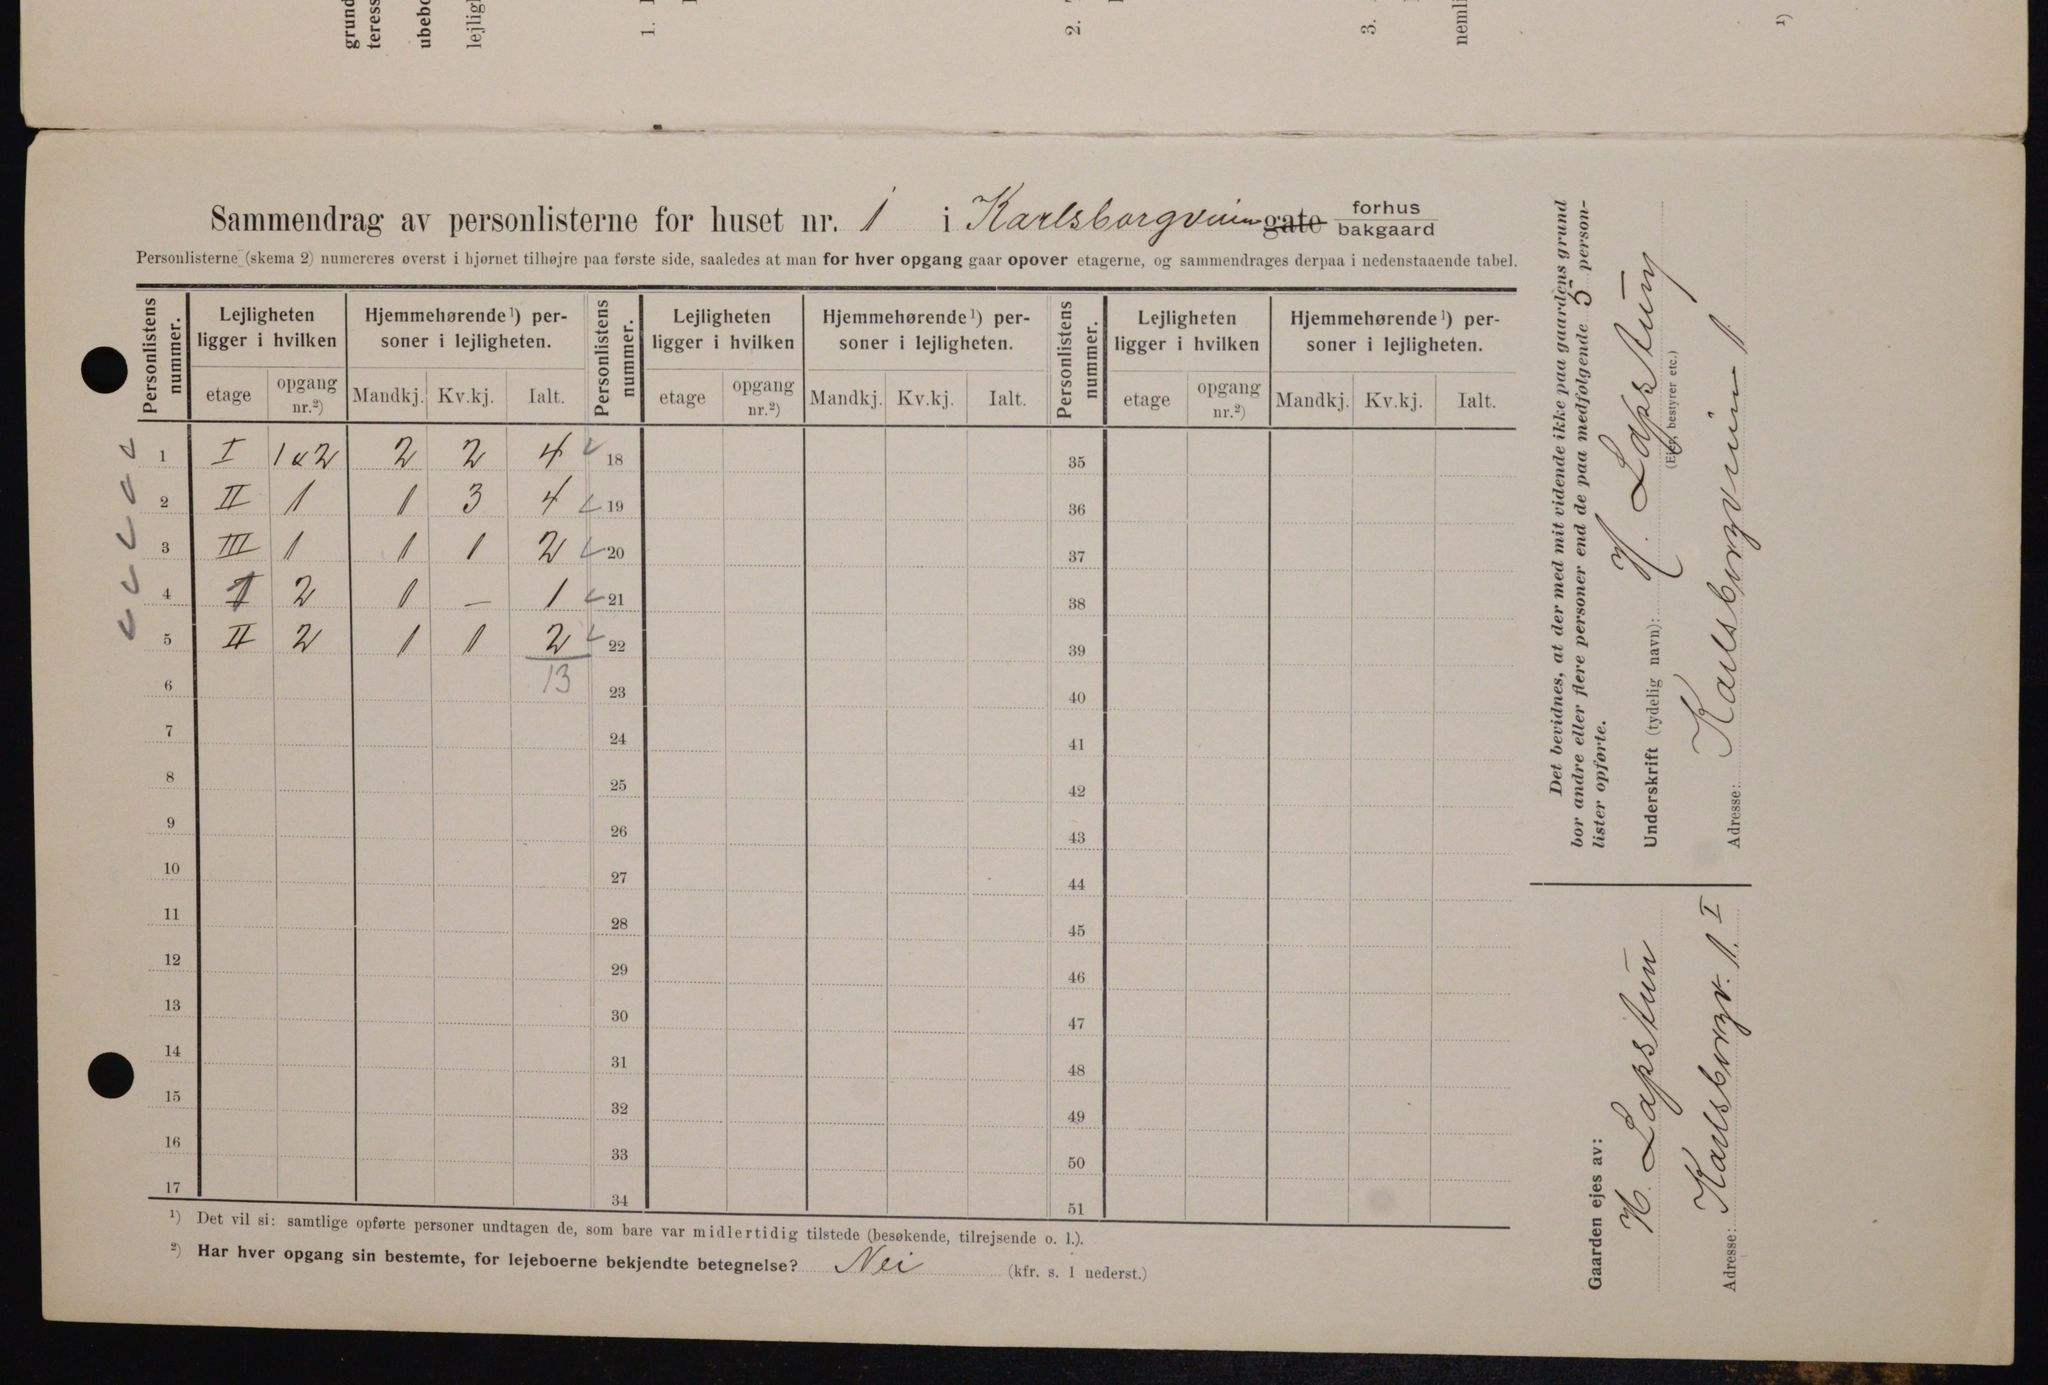 grund
teress
ubebo
lejligh
1.
2.
3.
nemli
¹)
Sammendrag av personlisterne for huset nr. 1 i Karlsborgveien gate forhus bakgaard
Personlisterne (skema 2) numereres øverst i hjørnet tilhøjre paa første side, saaledes at man for hver opgang gaar opover etagerne, og sammendrages derpaa i nedenstaaende tabel.
Personlistens nummer. Lejligheten ligger i hvilken Hjemmehørende¹) personer i lejligheten. Personlistens nummer. Lejligheten ligger i hvilken Hjemmehørende¹) personer i lejligheten. Personlistens nummer. Lejligheten ligger i hvilken Hjemmehørende¹) personer i lejligheten.
etage opgang nr.²) Mandkj. Kv.kj. Ialt. etage opgang nr.²) Mandkj. Kv.kj. Ialt. etage opgang nr.²) Mandkj. Kv.kj. Ialt.
1 I 1 & 2 2 2 4 18 35
2 II 1 1 3 4 19 36
3 III 1 1 1 2 20 37
4 I 2 1 – 1 21 38
5 II 2 1 1 2 22 39
6 13 23 40
7 24 41
8 25 42
9 26 43
10 27 44
11 28 45
12 29 46
13 30 47
14 31 48
15 32 49
16 33 50
17 34 51
¹) Det vil si: samtlige opførte personer undtagen de, som bare var midlertidig tilstede (besøkende, tilrejsende o. l.).
²) Har hver opgang sin bestemte, for lejeboerne bekjendte betegnelse? Nei (kfr. s. 1 nederst.)
Det bevidnes, at der med mit vidende ikke paa gaardens grund
bor andre eller flere personer end de paa medfølgende 5 person-
lister opførte.
Underskrift (tydelig navn): H. Lapstun
(Eier, bestyrer etc.)
Adresse: Karlsborgveien 1
Gaarden ejes av:
H. Lapstun
Adresse: Karlsborgv. 1. I